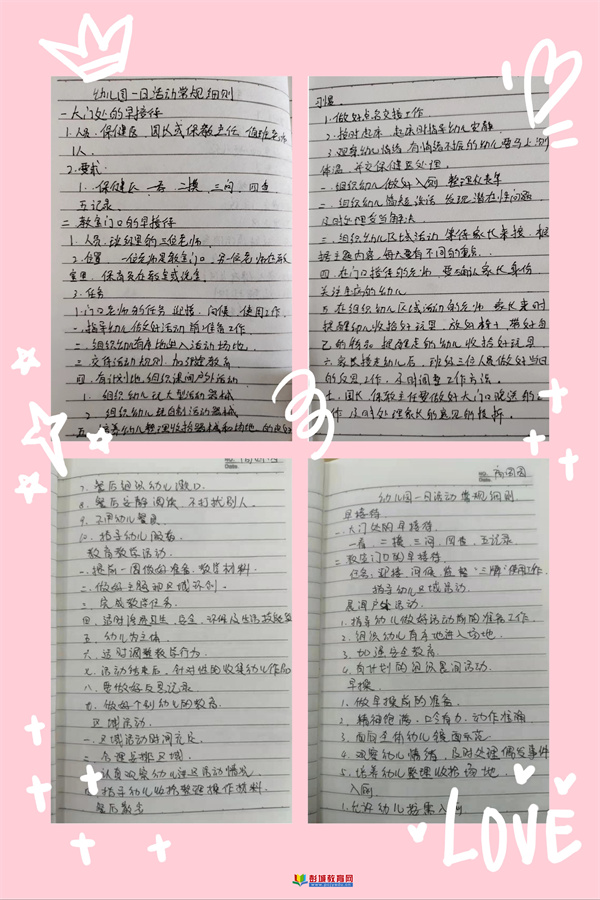 幼儿园一日活动常规细则
一大门处的早接待
1.人员：保健医、园长或保教主任、值班老师
1人.
2.要求.
1.保健医一看二摸、三问、四查
五记录.
二 教室门口的早接待
1.人员：这班里的三位老师.
2.位置
室里，保育员在教室或洗室.
3.任务
1.门口老师的任务 迎接，问候，使用工作.
一.指导幼儿做好活动前准备工作.
二.组织幼儿有序地进入活动场地.
三.交待活动规则，加强安全教育
四.有计划地组织课间户外活动.
1. 组织幼儿玩大型活动器械
2. 组织幼儿玩自制活动器械
习惯.
1.做好点名交接工作.
2.按时起床 起床时指导幼儿穿鞋
3.观察幼儿情绪，有情绪不振的幼儿要马上测
体温，并交保健医处理.
一.组织幼儿做好入厕 整理仪表等
二.组织幼儿简短谈话 发现潜在性问题
及时处理妥当解决
三.组织幼儿区域活动 等待家长来接，根
据主题内容，每天要有不同的重点.
四.在门口接待的老师 要确认家长身份
关注生病的幼儿
五.在组织幼儿区域活动的老师 家长来时
提醒幼儿收拾好玩具，放好椅子，带好自
己的物品 提醒走的幼儿收拾好玩具
六.家长接走幼儿后，班级三位人员做好当日
的反思工作，及时调整工作方法.
七.园长、保教主任要做好大门口晚送的工
作 及时处理家长的意见的投诉.
Date.
7.餐后组织幼儿漱口.
8.餐后安静阅读，不打扰别人.
9.不用幼儿餐具
10.指导幼儿服药.
教育教学活动.
一.提前一周做好准备.教学材料.
二.做好主题和区域环创.
三.完成教学任务.
四.适时渗透卫生，安全，环保及生活技能
五.幼儿为主体
六.适时调整教学行为.
七.活动结束后，针对性的收集幼儿作品
八.要做好反思记录
九.做好个别幼儿的教育.
区域活动.
一.区域活动时间充足.
二.合理安排区域.
认真观察幼儿区域活动情况.
指导幼儿收拾整理操作材料.
餐后散步
Date.
幼儿园一日活动常规细则
早接待
一.大门处的早接待.
一看，二摸，三问，四查，五记录
二.教室门口的早接待
任务：迎接，问候，监督“三牌”使用工作.
指导幼儿区域活动.
晨间户外活动.
1.指导幼儿做好活动前的准备工作.
2.组织幼儿有序地进入场地.
3.加强安全教育.
4.有计划的组织晨间活动.
早操.
1.做早操前的准备.
2.精神饱满，口令有力，动作准确
3.面向全体幼儿镜面示范
4.观察幼儿情绪，及时处理偶发事件
5.培养幼儿整理收拾场地.
入厕.
1.允许幼儿按需入厕
LOVE
彭城教育网